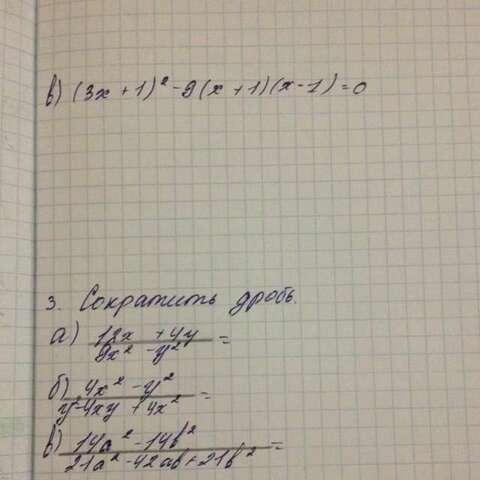 в) (3x + 1)² - 9(x + 1)(x - 1) = 0
3. Сократить дробь.
а) 12x + 4y
9x² - y² =
б) 4x² - y²
y² - 4xy + 4x² =
в) 14a² - 14b²
21a² - 42ab + 21b² =